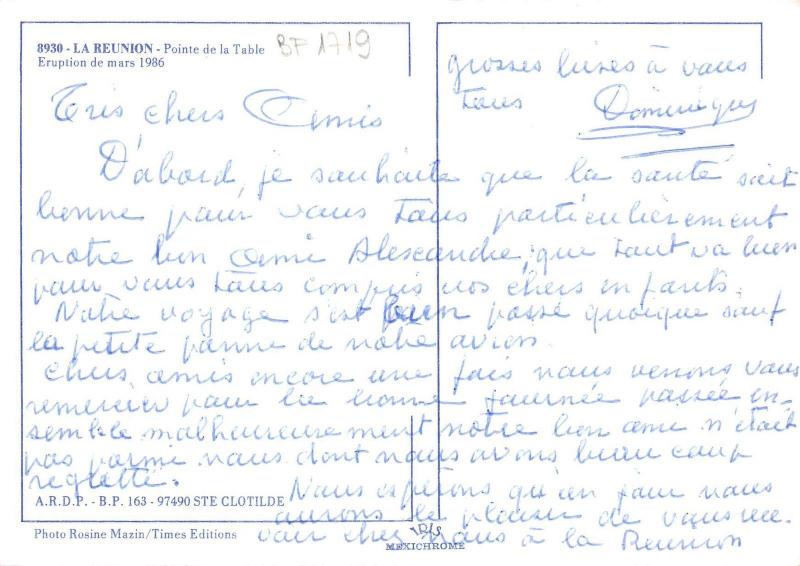 8930 - LA REUNION - Pointe de la Table
Eruption de mars 1986
BF 1719
Très chers Amis
D'abord, je souhaite que la santé soit
bonne pour vous tous particulièrement
notre bon ami Alexandre, que tout va bien
pour vous tous compris vos chers enfants.
Notre voyage s'est bien passé quoique sauf
la petite panne de notre avion.
Chers amis encore une fois nous venons vous
remercier pour la bonne journée passée en-
semble malheureusement notre bon ami n'était
pas parmi nous dont nous avons beaucoup
regretté.
Nous espérons qu'un jour nous
aurons le plaisir de vous rece-
voir chez nous à la Reunion
grosses bises à vous
tous Dominique
A.R.D.P. - B.P. 163 - 97490 STE CLOTILDE
Photo Rosine Mazin/Times Editions
IRIS
MEXICHROME